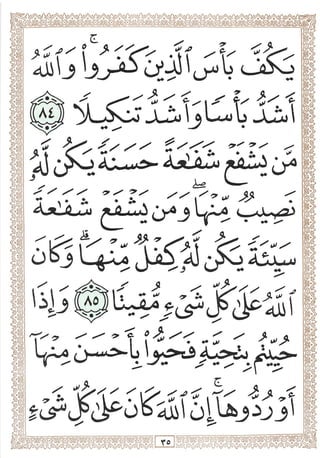 يَكُفَّ بَأْسَ ٱلَّذِينَ كَفَرُوا۟ۚ وَٱللَّهُ
أَشَدُّ بَأْسًا وَأَشَدُّ تَنكِيلًا ٨٤
مَّن يَشْفَعْ شَفَـٰعَةً حَسَنَةً يَكُن لَّهُۥ
نَصِيبٌ مِّنْهَاۖ وَمَن يَشْفَعْ شَفَـٰعَةً
سَيِّئَةً يَكُن لَّهُۥ كِفْلٌ مِّنْهَاۗ وَكَانَ
ٱللَّهُ عَلَىٰ كُلِّ شَىْءٍ مُّقِيتًا ٨٥ وَإِذَا
حُيِّيتُم بِتَحِيَّةٍ فَحَيُّوا۟ بِأَحْسَنَ مِنْهَآ
أَوْ رُدُّوهَآۚ إِنَّ ٱللَّهَ كَانَ عَلَىٰ كُلِّ شَىْءٍ
٣٥